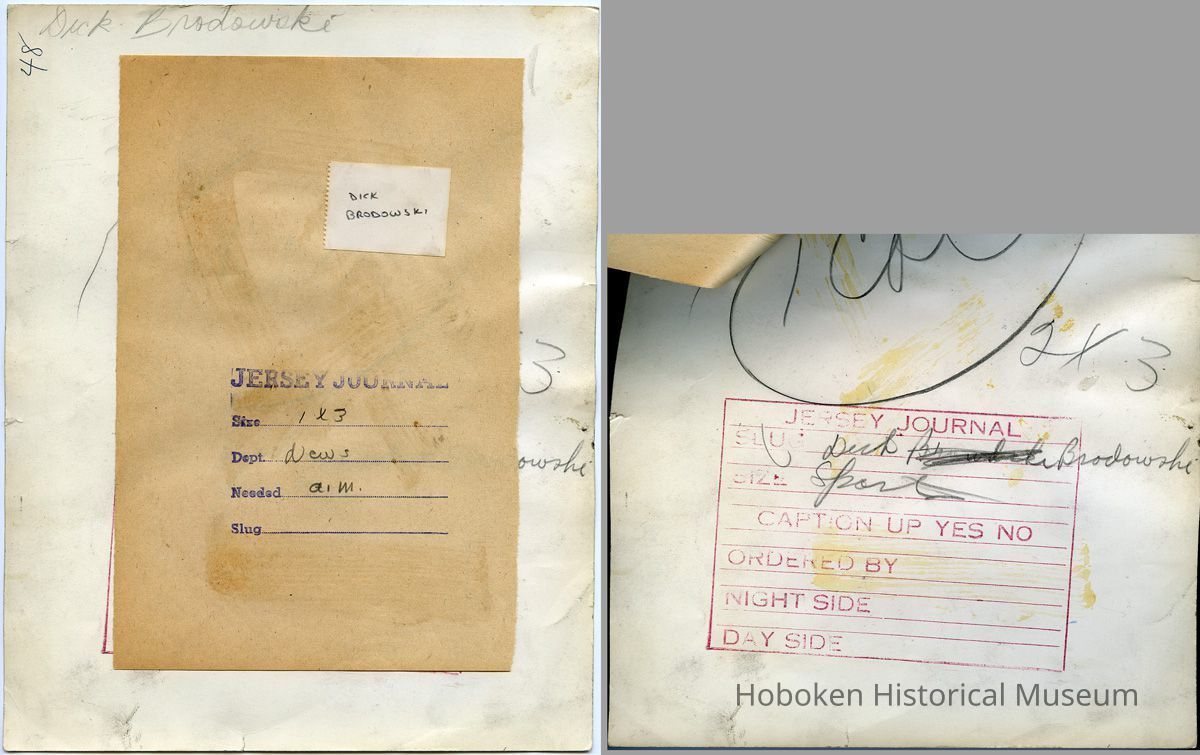 Dick Brodowski
48
DICK
BRODOWSKI
JERSEY JOURNAL
Size 1x3
Dept. News
Needed a.m.
Slug
3
owski
2 x 3
JERSEY JOURNAL
SLUG Dick Brodowski
SIZE Sports
CAPTION UP YES NO
ORDERED BY
NIGHT SIDE
DAY SIDE
Hoboken Historical Museum